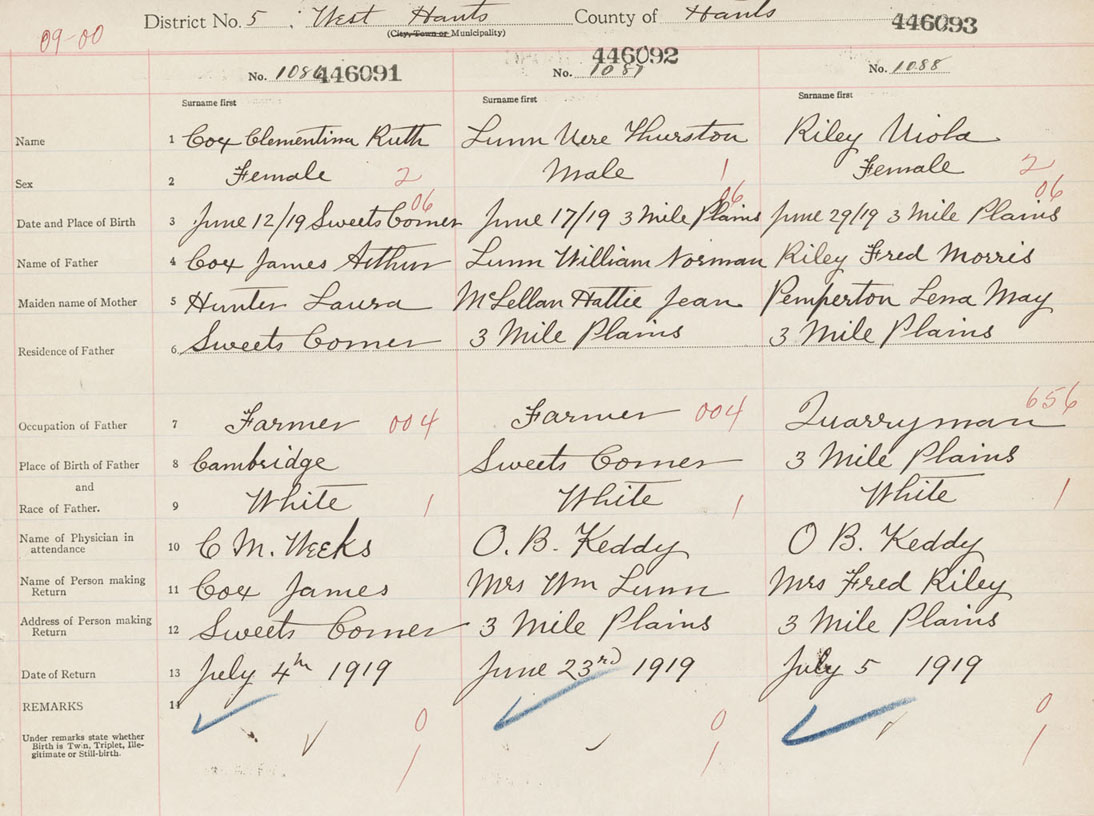 District No. 5, West Hants County of Hants 446093
(City, Town or Municipality)
09-00
446092
No. 1086 446091 No. 1087 No. 1088
Surname first Surname first Surname first
Name 1 Cox Clementina Ruth Lunn Vere Thurston Riley Viola
Sex 2 Female 2 Male 1 Female 2
06 06 06
Date and Place of Birth 3 June 12/19 Sweets Corner June 17/19 3 Mile Plains June 29/19 3 Mile Plains
Name of Father 4 Cox James Arthur Lunn William Norman Riley Fred Morris
Maiden name of Mother 5 Hunter Laura McLellan Hattie Jean Pemperton Lena May
Residence of Father 6 Sweets Corner 3 Mile Plains 3 Mile Plains
Occupation of Father 7 Farmer 004 Farmer 004 Quarryman 656
Place of Birth of Father 8 Cambridge Sweets Corner 3 Mile Plains
and
Race of Father. 9 White 1 White 1 White 1
Name of Physician in
attendance 10 C M. Weeks O. B. Keddy O B. Keddy
Name of Person making
Return 11 Cox James Mrs Wm Lunn Mrs Fred Riley
Address of Person making
Return 12 Sweets Corner 3 Mile Plains 3 Mile Plains
Date of Return 13 July 4th 1919 June 23rd 1919 July 5 1919
REMARKS 14
0 0 0
Under remarks state whether
Birth is Twin, Triplet, Ille-
gitimate or Still-birth.
1 1 1